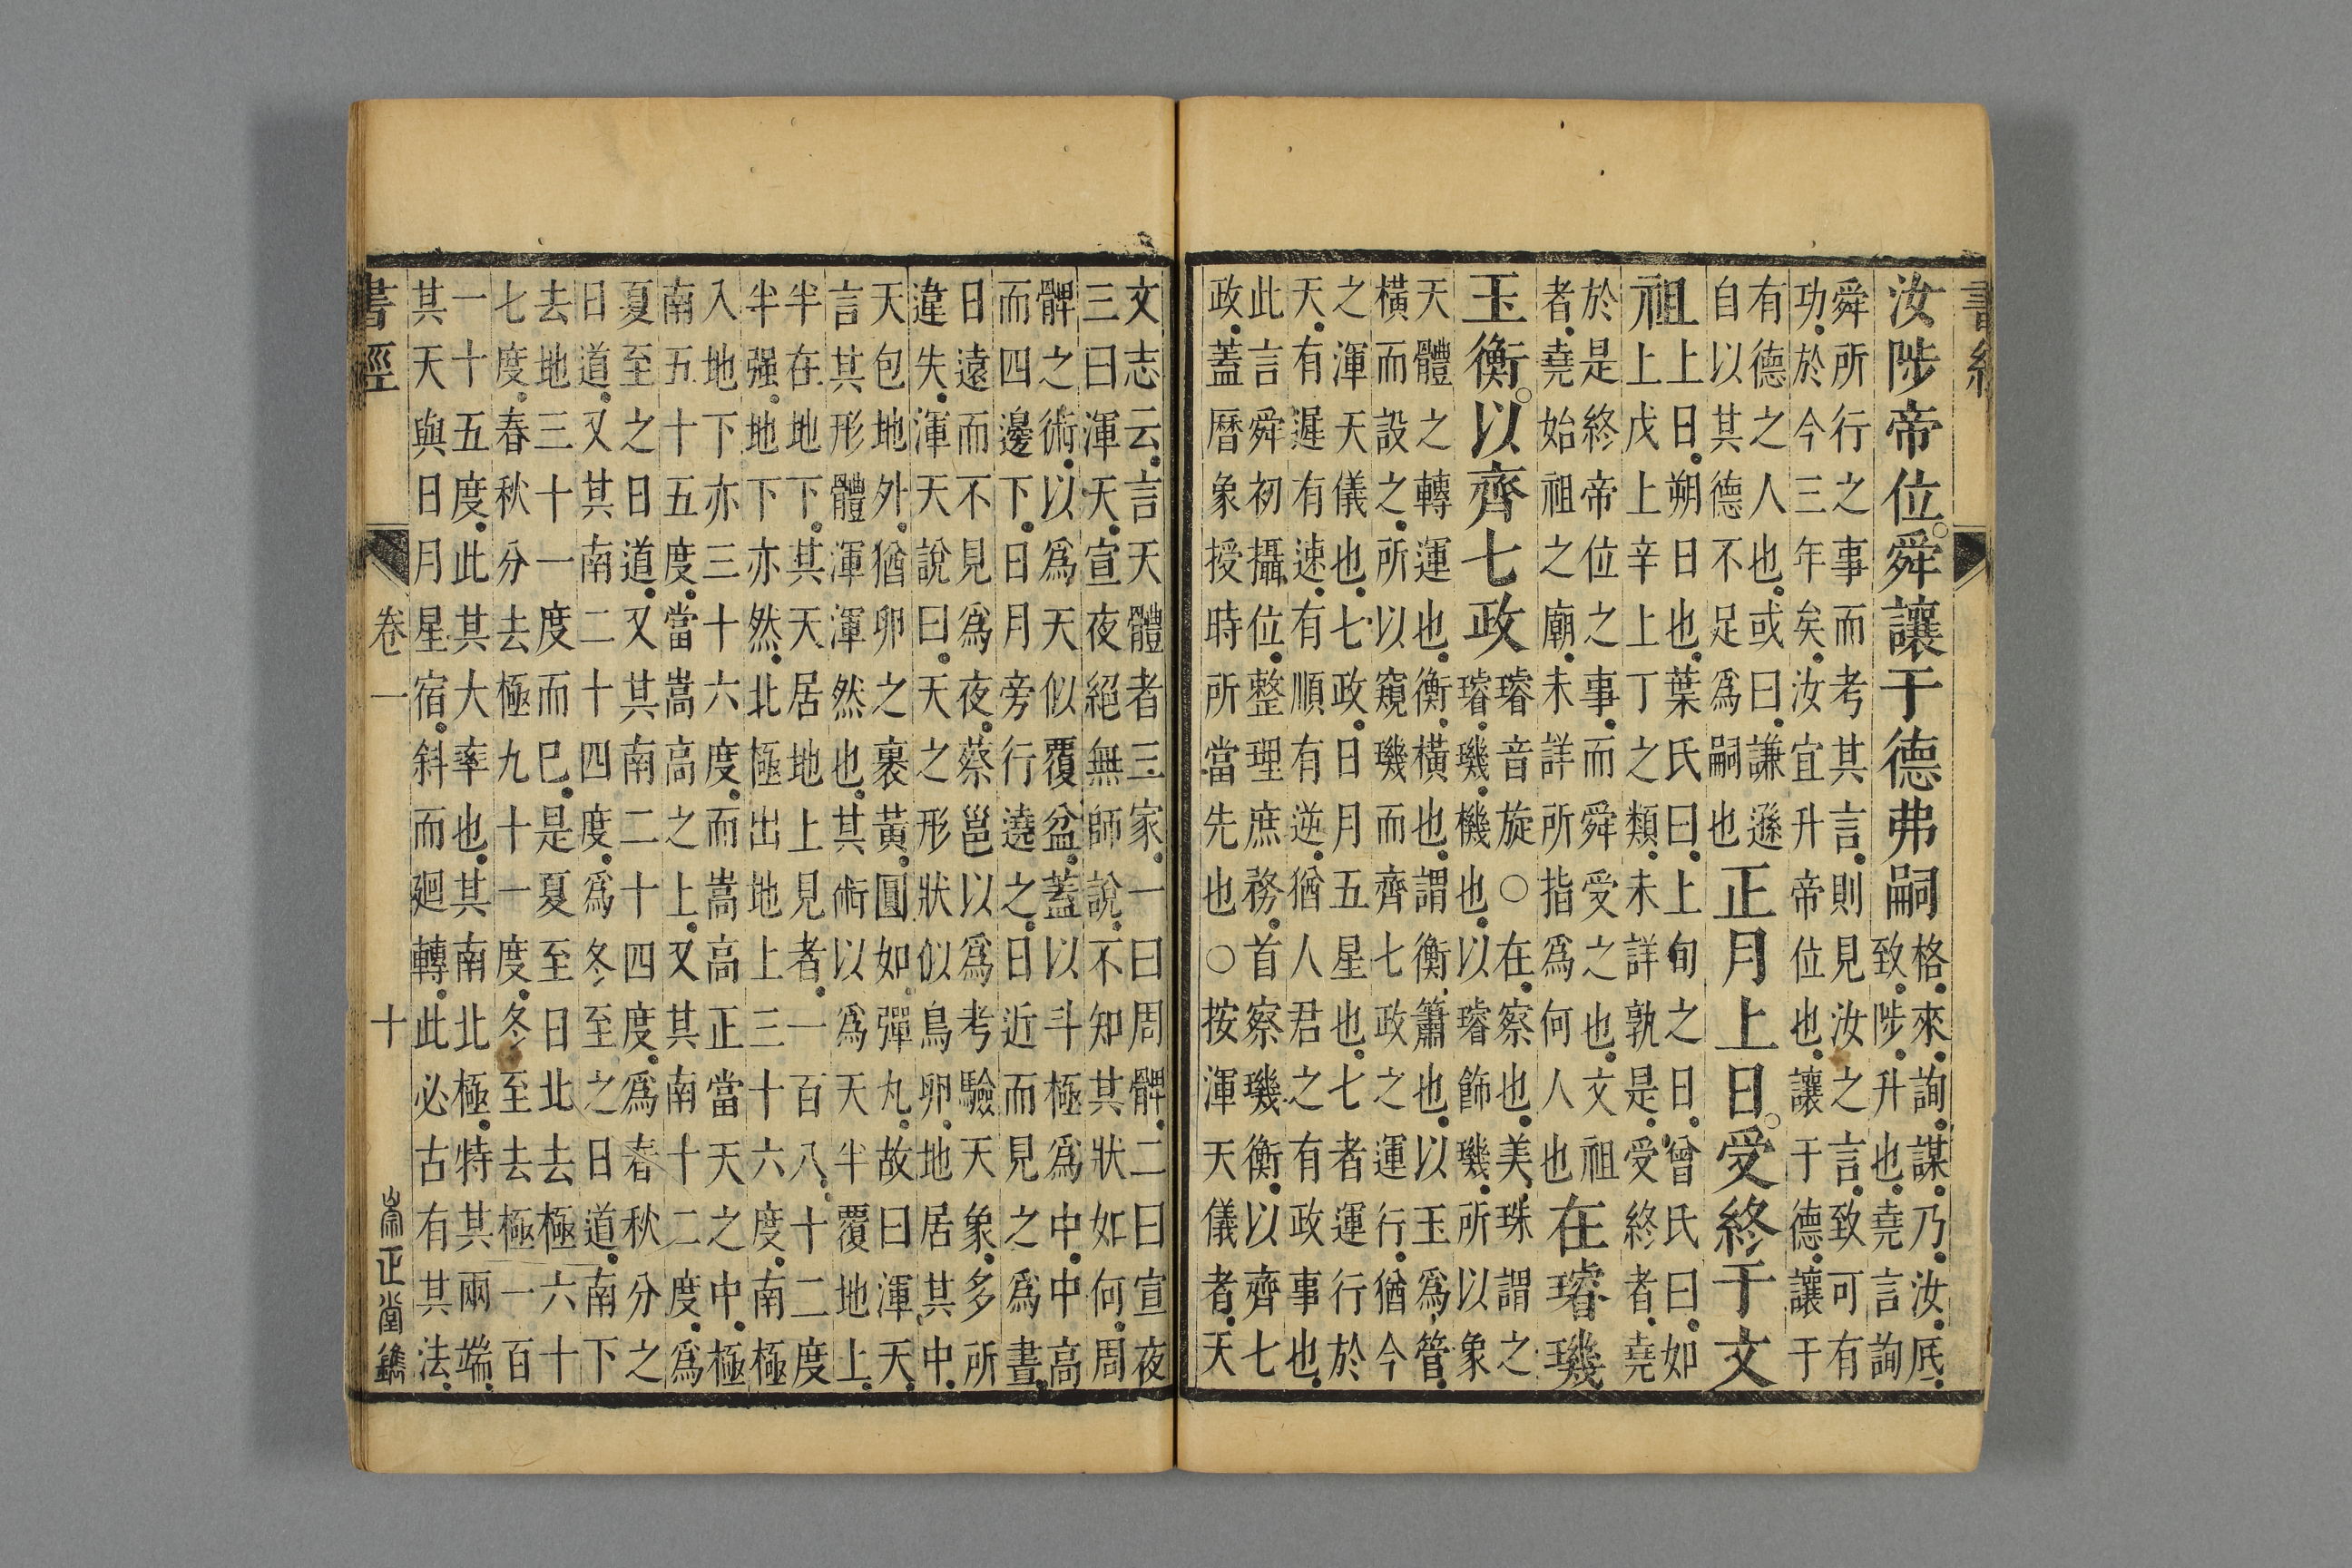 汝陟帝位舜讓于德弗嗣
格來詢謀乃汝厎
致陟升也堯言詢
舜所行之事而考其言則見汝之言致可有
功於今三年矣汝宜升帝位也讓于德讓于
有德之人也或曰謙遜
自以其德不足爲嗣也
正月上日受終于文
祖
上日朔日也葉氏曰上旬之日曾氏曰如
上戊上辛上丁之類未詳孰是受終者堯
於是終帝位之事而舜受之也文祖
者堯始祖之廟未詳所指爲何人也
在璿璣
玉衡以齊七政
璿音旋○在察也美珠謂之
璿璣機也以璿飾璣所以象
天體之轉運也衡橫也謂衡簫也以玉爲管
橫而設之所以窺璣而齊七政之運行猶今
之渾天儀也七政日月五星也七者運行於
天有遲有速有順有逆猶人君之有政事也
此言舜初攝位整理庶務首察璣衡以齊七
政蓋曆象授時所當先也○按渾天儀者天
文志云言天體者三家一曰周髀二曰宣夜
三曰渾天宣夜絕無師說不知其狀如何周
髀之術以爲天似覆盆蓋以斗極爲中中高
而四邊下日月旁行遶之日近而見之爲晝
日遠而不見爲夜蔡邕以爲考驗天象多所
違失渾天說曰天之形狀似鳥卵地居其中
天包地外猶卵之裹黃圓如彈丸故曰渾天
言其形體渾渾然也其術以爲天半覆地上
半在地下其天居地上見者一百八十二度
半强地下亦然北極出地上三十六度南極
入地下亦三十六度而嵩高正當天之中極
南五十五度當嵩高之上又其南十二度爲
夏至之日道又其南二十四度爲春秋分之
日道又其南二十四度爲冬至之日道南下
去地三十一度而已是夏至日北去極六十
七度春秋分去極九十一度冬至去極一百
一十五度此其大率也其南北極特其兩端
其天與日月星宿斜而廻轉此必古有其法
書經 卷一 十 崇正堂鐫